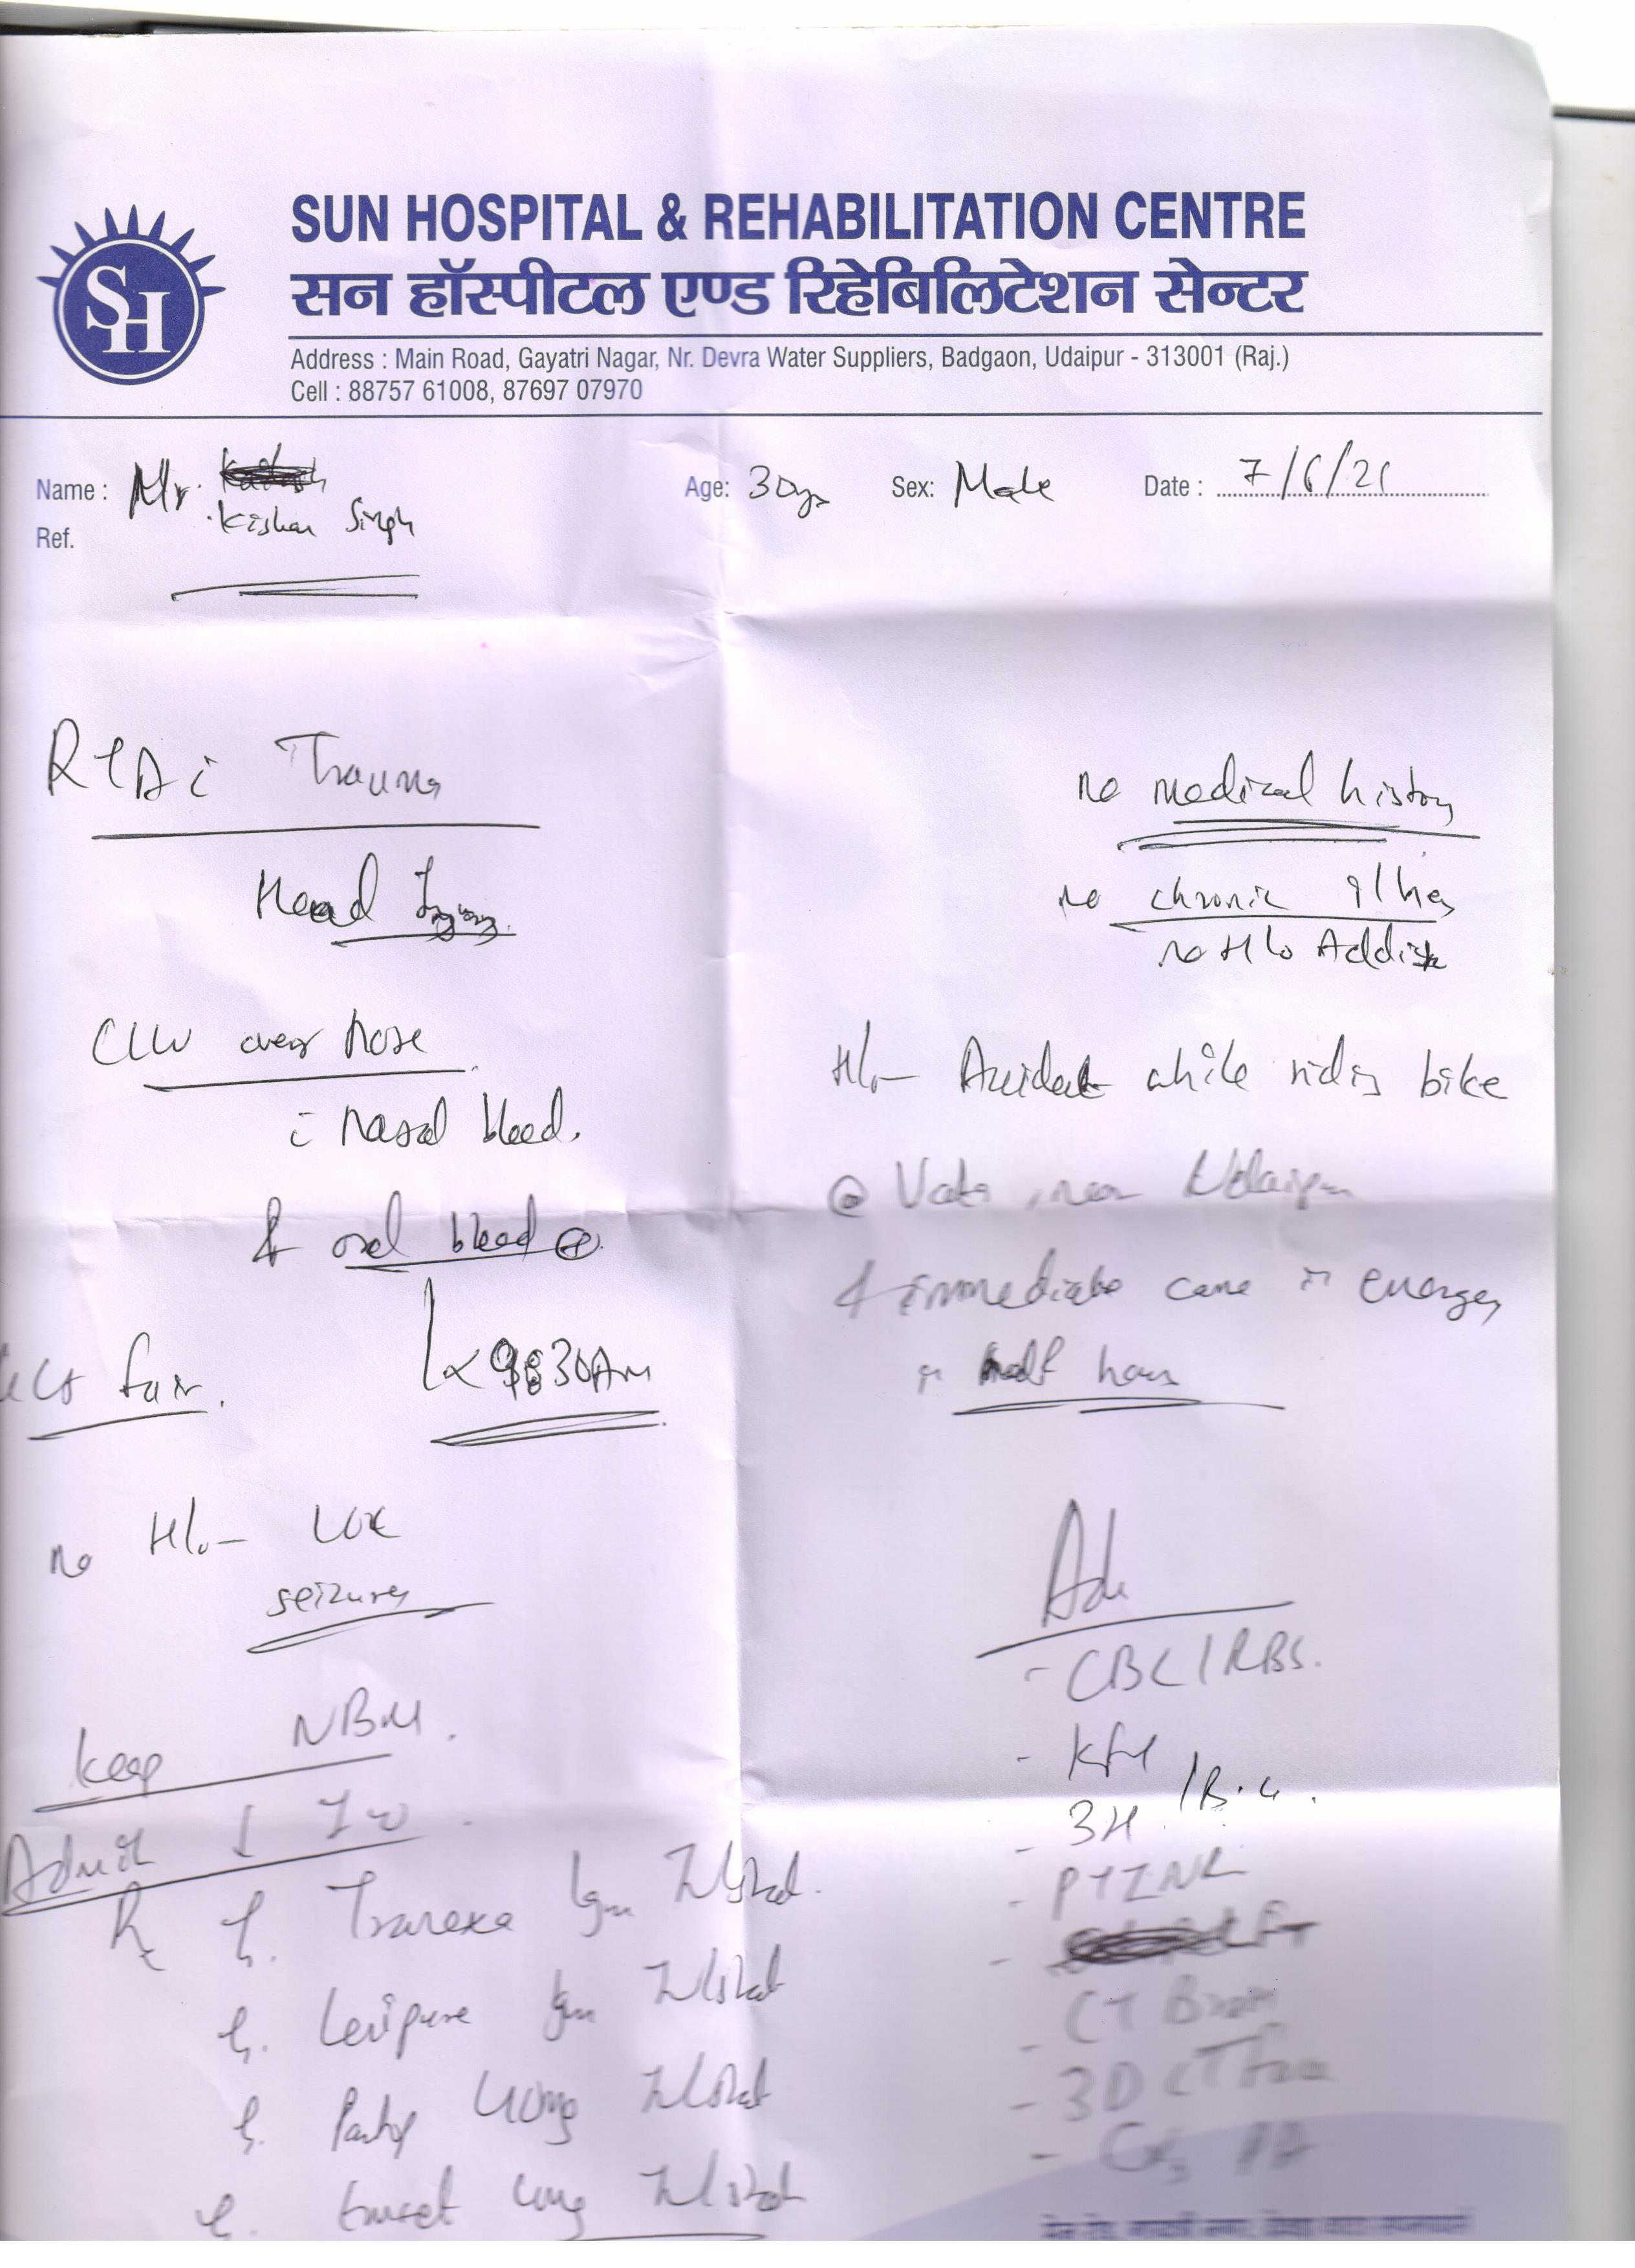 SUN HOSPITAL & REHABILITATION CENTRE
सन हॉस्पीटल एण्ड रिहेबिलिटेशन सेन्टर
Address : Main Road, Gayatri Nagar, Nr. Devra Water Suppliers, Badgaon, Udaipur - 313001 (Raj.)
Cell : 88757 61008, 87697 07970
SH
Name : Mr. Kishan Singh Age: 30yr Sex: Male Date : 7/6/21
Ref.
RTA c Trauma
Head Injury.
CLW over Nose
c Nasal bleed.
& oral bleed ⊕
9:30AM
fair.
no H/o- LOC
seizures
keep NBM.
Admit
Rx Tranexa 1gm IV/stat.
Levipure 1gm IV/stat
IV/stat
Emset IV/stat
no medical history
no chronic illnes
no H/o Addict
H/o- Accident while riding bike
@ near Udaipur
& immediate came in emergey
in half hour
Adv
- CBC/RBS.
- KFT
- 3H /B.G.
- PTINR
- LFT
- CT Brain
- 3D CT Face
- CXR PA